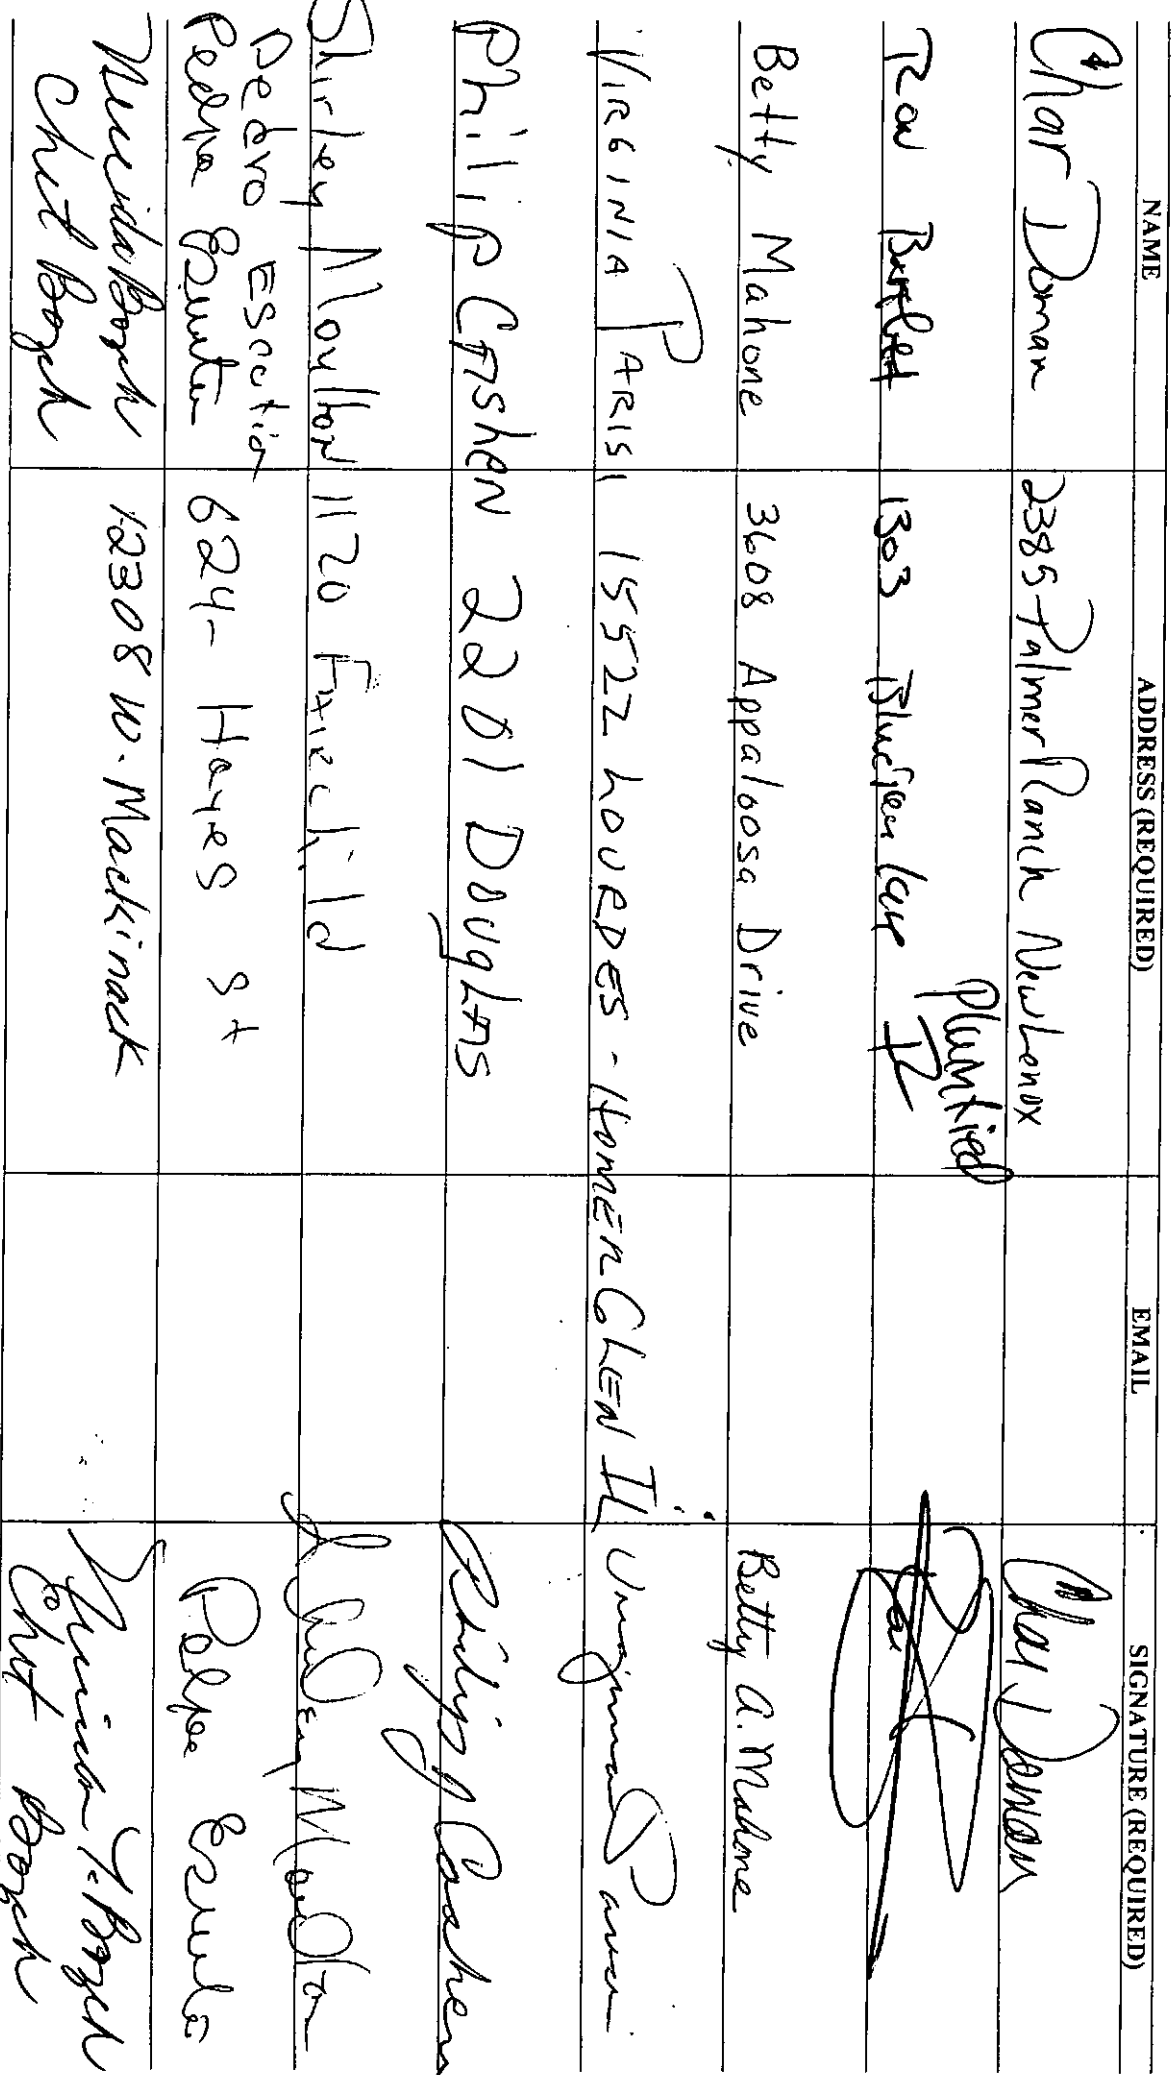 NAME ADDRESS (REQUIRED) EMAIL SIGNATURE (REQUIRED)
Char Doman 2385 Palmer Ranch New Lenox Char Doman
Ron Bartlett 1303 Bluestem Plainfield IL
Betty Mahone 3608 Appaloosa Drive Betty A. Mahone
VIRGINIA PARISI 15522 LOURDES - HOMER GLEN IL Virginia Parisi
Philip CAShEN 2201 DougLAS Philip Cashen
Shirley Moulton 1120 FAIRchild Shirley Moulton
Pedro Escutia
Pedro 624- Hayes St
Bozek 12308 W. Mackinack Bozek
Chet Bozek Chet Bozek